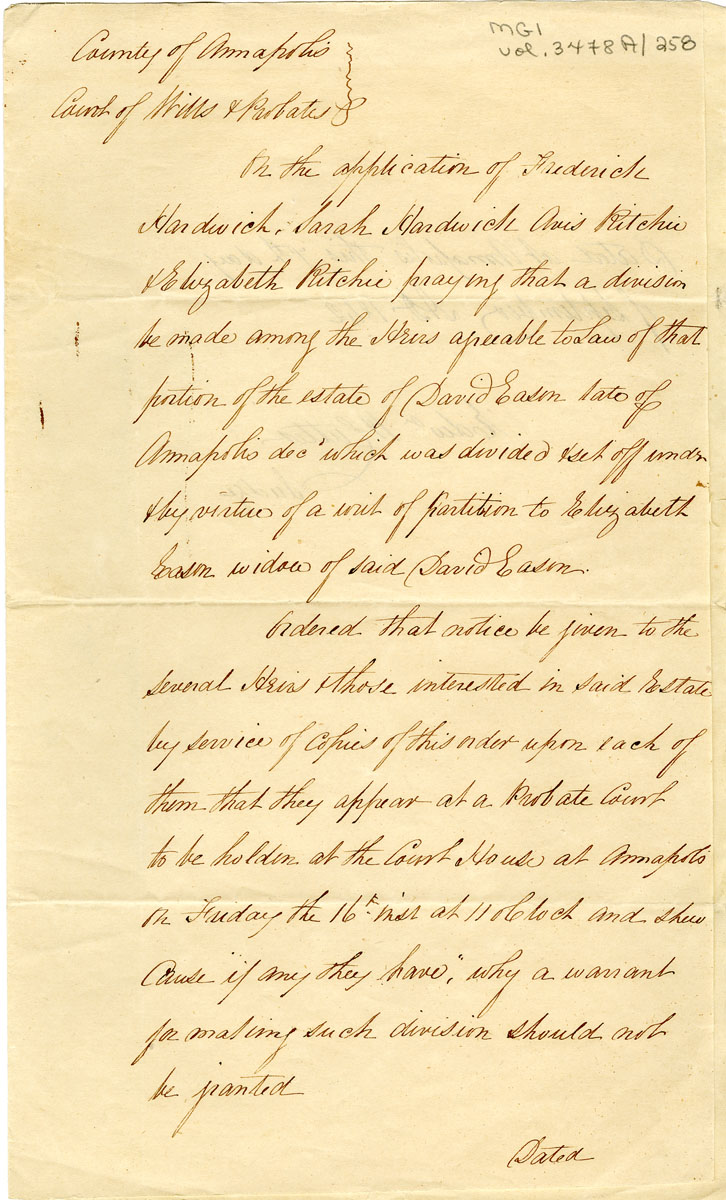 MG1
vol. 3478A/258
County of Annapolis
Court of Wills & Probates
On the application of Frederick
Hardwick, Sarah Hardwick Avis Ritchie
& Elizabeth Ritchie praying that a division
be made among the Heirs agreeable to Law of that
portion of the estate of David Eason late of
Annapolis decd which was divided & set off under
& by virtue of a writ of partition to Elizabeth
Eason widow of said David Eason.
Ordered that notice be given to the
several Heirs & those interested in said Estate
by service of Copies of this order upon each of
them that they appear at a Probate Court
to be holden at the Court House at Annapolis
on Friday the 16th inst at 11 oClock and shew
Cause "if any they have", why a warrant
for making such division should not
be granted
Dated